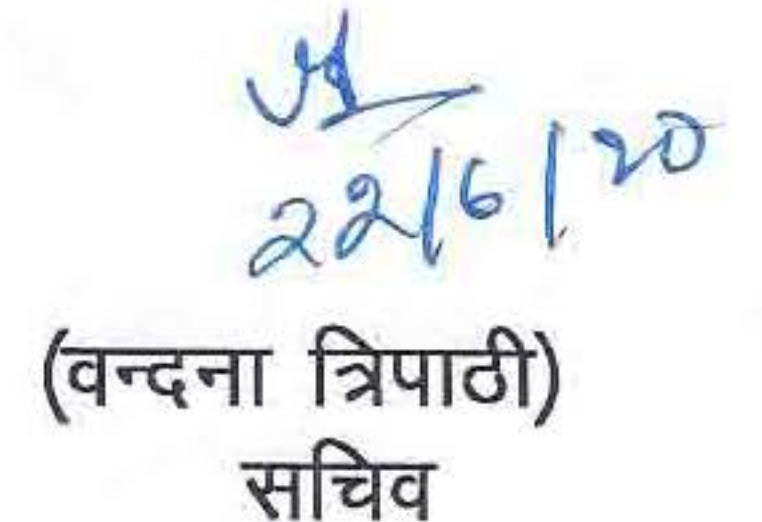 22/6/20
(वन्दना त्रिपाठी)
सचिव